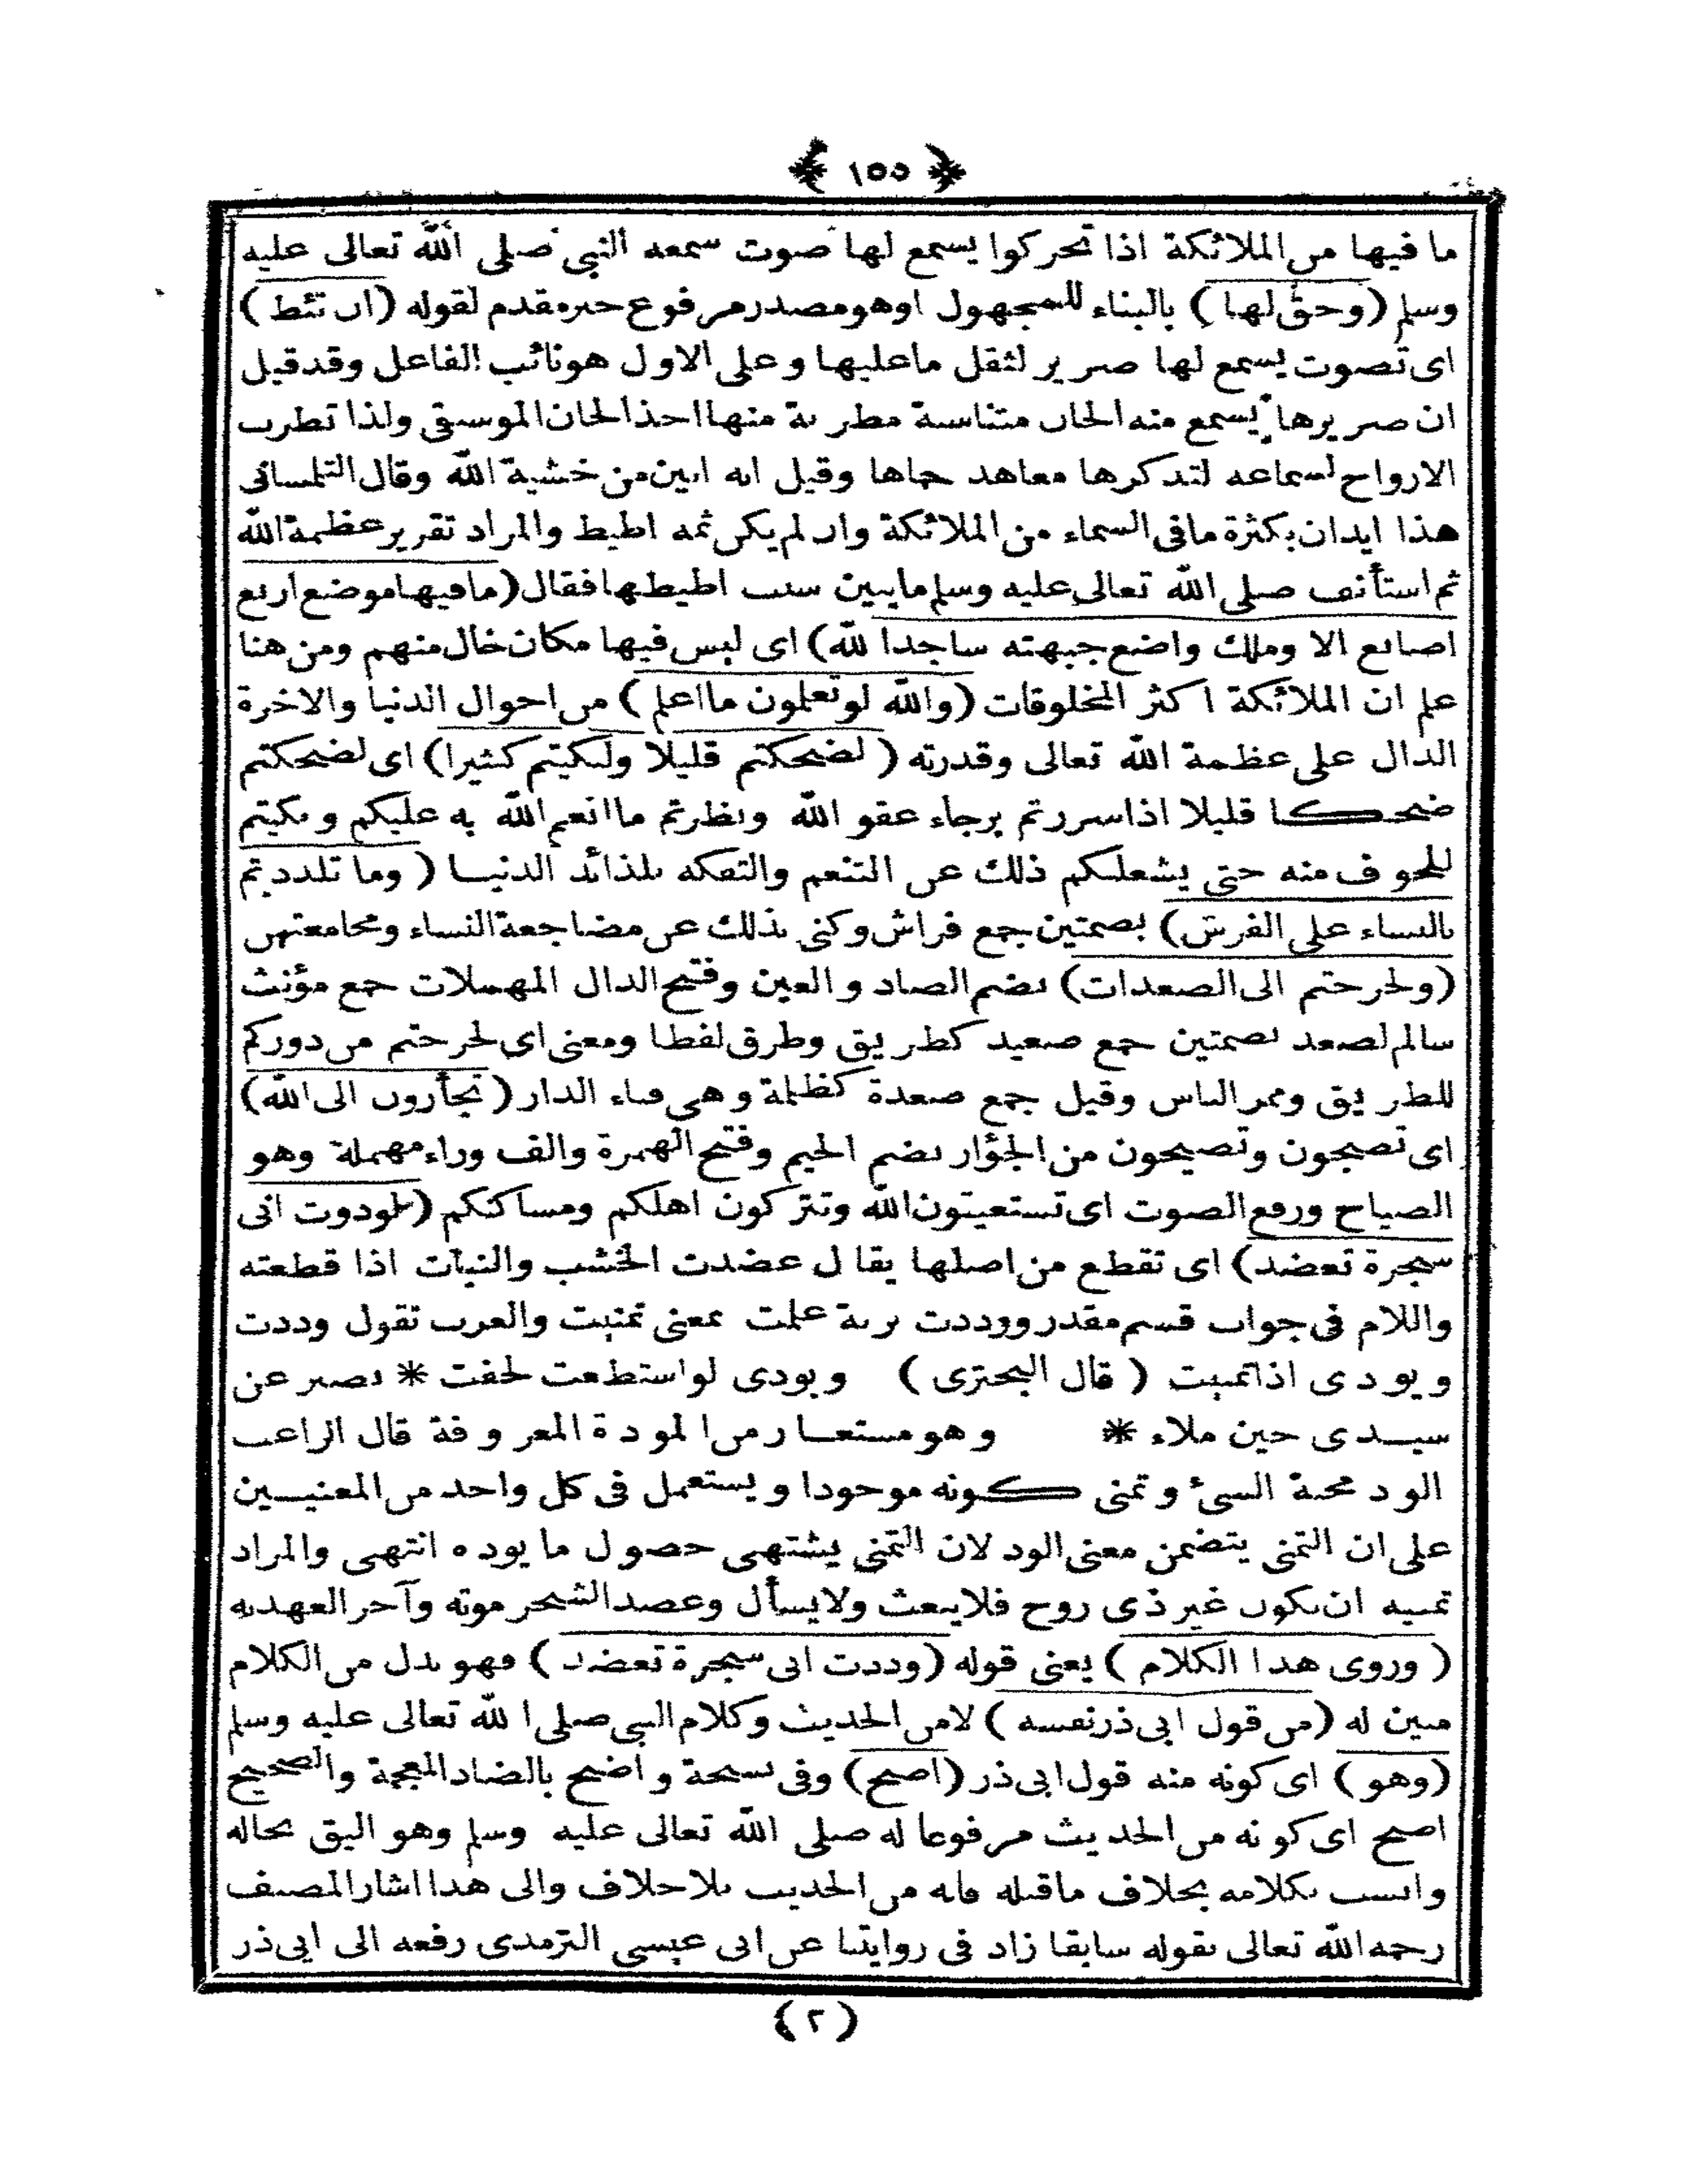 ﴿ ١٥٥ ﴾
ما فيها من الملائكة اذا تحركوا يسمع لها صوت سمعه النبى صلى الله تعالى عليه
وسلم (وحق لها) بالبناء للمجهول اوهو مصدر مرفوع خبر مقدم لقوله (ان تئط)
اى تصوت يسمع لها صرير لثقل ماعليها وعلى الاول هونائب الفاعل وقدقيل
ان صريرها يسمع منه الحان متناسبة مطربة منها اخذ الحان الموسيقى ولذا تطرب
الارواح لسماعه لتذكرها معاهد حماها وقيل انه انين من خشية الله وقال التلمسانى
هذا ايذان بكثرة مافى السماء من الملائكة وان لم يكن ثمه اطيط والمراد تقرير عظمة الله
ثم استأنف صلى الله تعالى عليه وسلم مايبين سبب اطيطها فقال (مافيها موضع اربع
اصابع الا وملك واضع جبهته ساجدا لله) اى ليس فيها مكان خال منهم ومن هنا
علم ان الملائكة اكثر المخلوقات (والله لو تعلمون ما اعلم) من احوال الدنيا والاخرة
الدال على عظمة الله تعالى وقدرته (لضحكتم قليلا ولبكيتم كثيرا) اى لضحكتم
ضحكا قليلا اذا سررتم برجاء عفو الله ونظرتم ما انعم الله به عليكم وبكيتم
للخوف منه حتى يشغلكم ذلك عن التنعم والتفكه بلذائذ الدنيا (وما تلذذتم
بالنساء على الفرش) بضمتين جمع فراش وكنى بذلك عن مضاجعة النساء ومجامعتهن
(ولخرجتم الى الصعدات) بضم الصاد والعين وفتح الدال المهملات جمع مؤنث
سالم لصعد بضمتين جمع صعيد كطريق وطرق لفظا ومعنى اى لخرجتم من دوركم
للطريق وممر الناس وقيل جمع صعدة كظلمة وهى فناء الدار (تجأرون الى الله)
اى تضجون وتصيحون من الجؤار بضم الجيم وفتح الهمزة والف وراء مهملة وهو
الصياح ورفع الصوت اى تستغيثون الله وتتركون اهلكم ومساكنكم (لوددت انى
شجرة تعضد) اى تقطع من اصلها يقال عضدت الخشب والنبات اذا قطعته
واللام فى جواب قسم مقدر ووددت بزنة علمت بمعنى تمنيت والعرب تقول وددت
وبودى اذا تمنيت (قال البحترى) وبودى لو استطعت لخفت * بصبر عن
سيدى حين ملاء * وهو مستعار من المودة المعروفة قال الراغب
الود محبة الشئ وتمنى كونه موجودا ويستعمل فى كل واحد من المعنيين
على ان التمنى يتضمن معنى الود لان التمنى يشتهى حصول ما يوده انتهى والمراد
تمنيه ان يكون غير ذى روح فلا يبعث ولا يسأل وعضد الشجر موته وآخر العهد به
(وروى هذا الكلام) يعنى قوله (وددت انى شجرة تعضد) فهو بدل من الكلام
مبين له (من قول ابى ذر نفسه) لا من الحديث وكلام النبى صلى الله تعالى عليه وسلم
(وهو) اى كونه منه قول ابى ذر (اصح) وفى نسخة واضح بالضاد المعجمة والصحيح
اصح اى كونه من الحديث مرفوعا له صلى الله تعالى عليه وسلم وهو اليق بحاله
وانسب بكلامه بخلاف ماقبله فانه من الحديث بلا خلاف والى هذا اشار المصنف
رحمه الله تعالى بقوله سابقا زاد فى روايتنا عن ابى عيسى الترمذى رفعه الى ابى ذر
(٢)